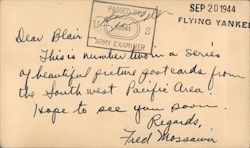 PASSED BY
U S
ARMY EXAMINER
SEP 20 1944
FLYING YANKEE
Dear Blair
This is number two in a series
of beautiful picture postcards from
the South west Pacific Area.
Hope to see you soon.
Regards,
Fred